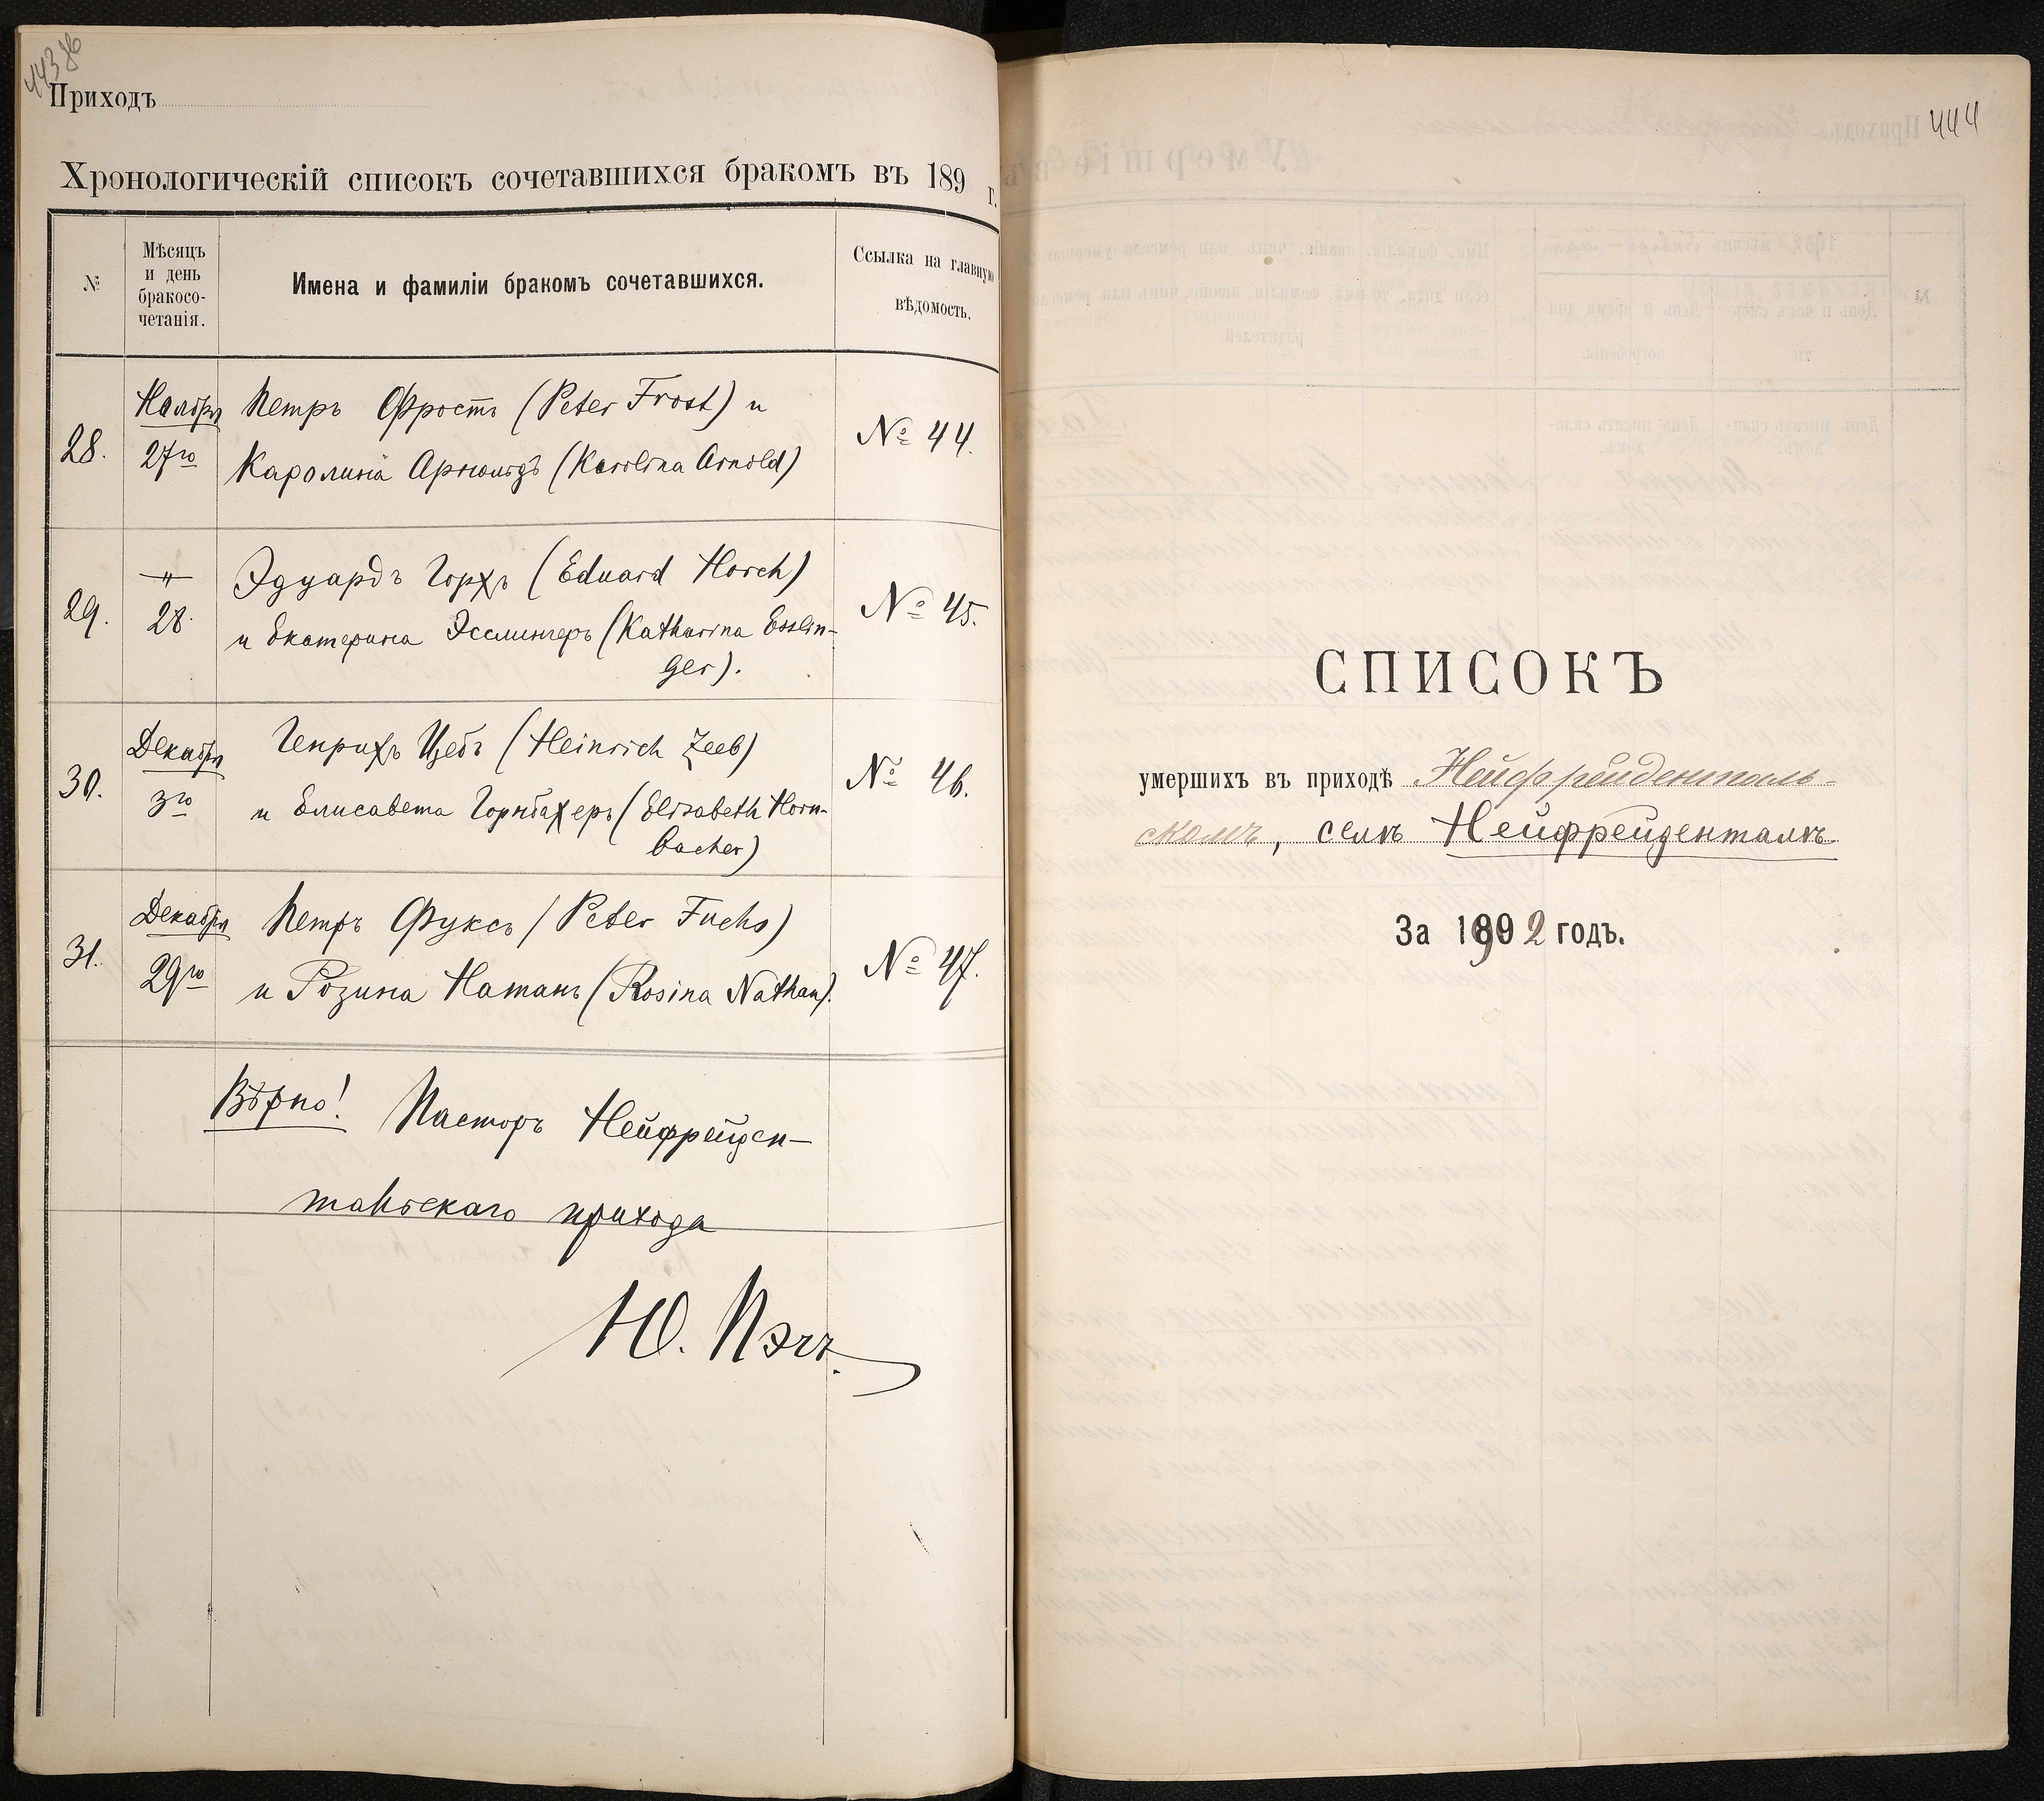 443 об
Приходъ
Хронологическій списокъ сочетавшихся бракомъ въ 189 г.
№
Мѣсяцъ
и день
бракосо-
четанія.
Имена и фамиліи бракомъ сочетавшихся.
Ссылка на главную
вѣдомость.
28.
Ноября
27го
Петръ Фростъ (Peter Frost) и
Каролина Арнольдъ (Karolina Arnold)
№ 44.
29.
"
28.
Эдуардъ Горхъ (Eduard Horch)
и Екатерина Эсслингеръ (Katharina Esslin-
ger).
№ 45.
30.
Декабря
3го
Генрихъ Цебъ (Heinrich Zeeb)
и Елисавета Горнбахеръ (Elisabeth Horn-
bacher)
№ 46.
31.
Декабря
29го
Петръ Фуксъ (Peter Fuchs)
и Розина Натанъ (Rosina Nathan).
№ 47.
Вѣрно! Пасторъ Нейфрейден-
тальскаго прихода
Ю. Пэчъ.
444
СПИСОКЪ
умершихъ въ приходѣ Нейфрейденталь-
скомъ, селѣ Нейфрейденталѣ
За 1892 годъ.